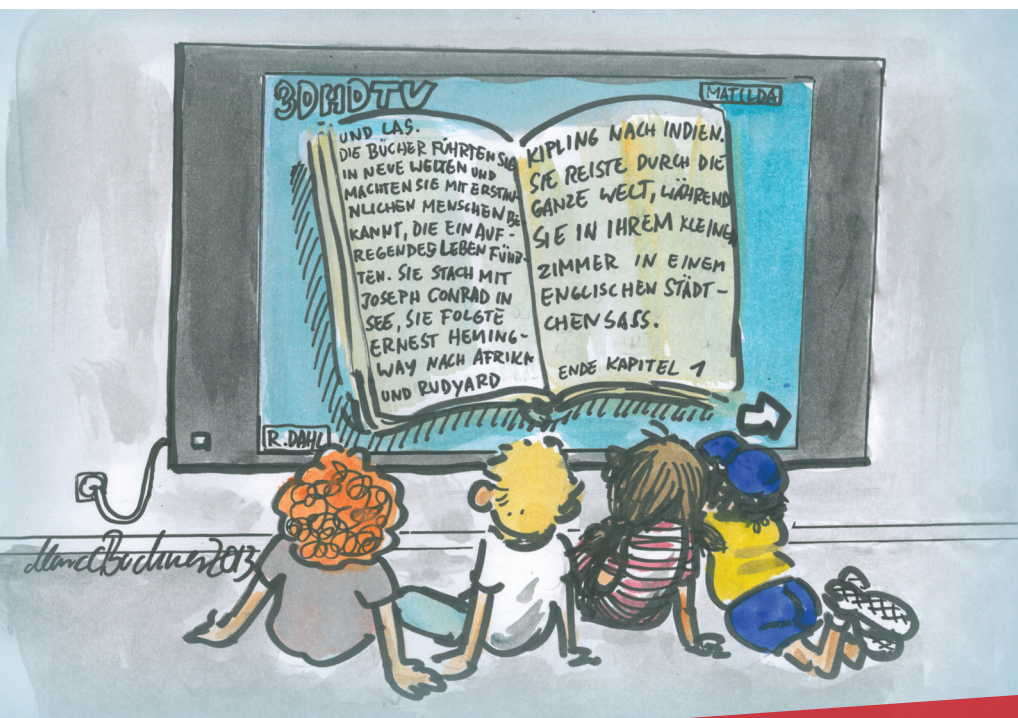 3DHDTV
MATILDA
UND LAS.
DIE BÜCHER FÜHRTEN SIE
IN NEUE WELTEN UND
MACHTEN SIE MIT ERSTAU-
NLICHEN MENSCHEN BE-
KANNT, DIE EIN AUF-
REGENDES LEBEN FÜHR-
TEN. SIE STACH MIT
JOSEPH CONRAD IN
SEE, SIE FOLGTE
ERNEST HEMING-
WAY NACH AFRIKA
UND RUDYARD
KIPLING NACH INDIEN.
SIE REISTE DURCH DIE
GANZE WELT, WÄHREND
SIE IN IHREM KLEINEN
ZIMMER IN EINEM
ENGLISCHEN STÄDT-
CHEN SASS.
ENDE KAPITEL 1
R. DAHL
2013